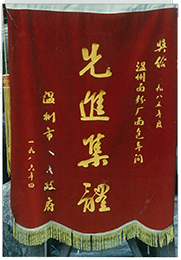 奖给
一九八五年度
温州面粉厂面包车间
先進集體
温州市人民政府
一九八六年四